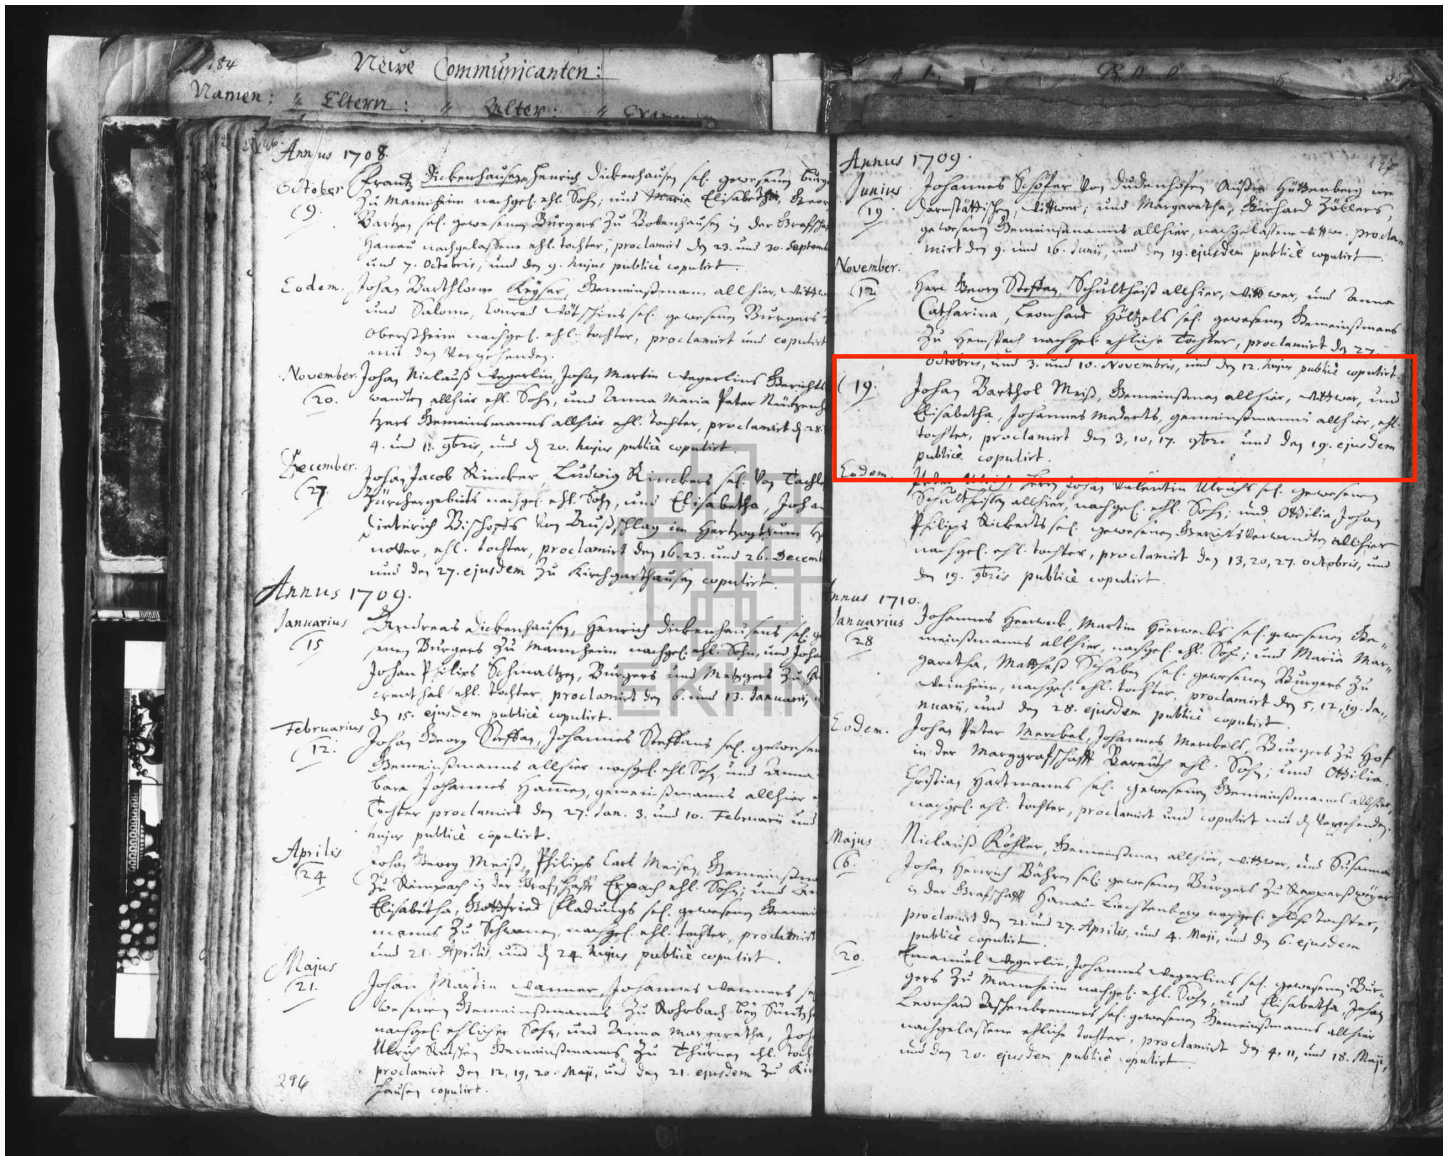 184
Neue Communicanten:
Namen: " Eltern: " Alter: " Examen
Annus 1708.
October Frantz Dickenhausen, Henrich Dickenhausen sel. gewesenen Burg
(9. zu Mannheim nachgel. ehl. Sohn, und Maria Elisabetha,
Bartzen sel. gewesenen Burgers zu Bobenhausen in der Graffscha
Hanau nachgelassene ehl. tochter, proclamirt den 23. und 30. Septemb
und 7. Octobris, und den 9. hujus publicè copulirt.
Eodem. Johan Barthlome Keyser, Gemeinßmann allhier, Wittw
und Salome, Conrad sel. gewesenen Burgers
Oberßheim nachgel. ehl. tochter, proclamirt und copulirt
mit den Vorgehenden.
November. Johan Niclauß Wegerlin, Johan Martin Wegerlins Gerichts
(20. wandten allhier ehl. Sohn, und Anna Maria Peter
Gemeinsmanns allhier ehl. tochter, proclamirt d. 28
4. und 11. 9bris, und d. 20. hujus publicè copulirt.
December. Johan Jacob Rincker, Ludwig Rinckers sel. von
(27. Zürchergebiets nachgel. ehl. Sohn, und Elisabetha, Johan
Dieterich Bischoffs von Außschlag im Hertzogtrum H
nover, ehl. tochter, proclamirt den 16. 23. und 26. Decemb
und den 27. ejusdem zu Kirchgarthausen copulirt.
Annus 1709.
Januarius Andreas Dickenhausen, Henrich Dickenhausens sel. g
(15 nen Burgers zu Mannheim nachgel. ehl. Sohn, und Joha
Johan Philips Schmaltzen, Burgers und Metzgers zu
creutzsal ehl. tochter, proclamirt den 6. und 13. Januarii,
den 15. ejusdem publicè copulirt.
Februarius Johan Georg Steffan, Johannes Steffans sel. gewesen
(12. Gemeinßmanns allhier nachgel. ehl. Sohn und Anna
bara Johannes Hammen, gemeinßmanns allhier e
Tochter proclamirt den 27. Jan. 3. und 10. Februarii und
hujus publicè copulirt.
Aprilis Johan Georg Meiß, Philips Carl Meisen, Gemeinßm
(24 zu Rimpach in der Graffschafft Erpach ehl. Sohn; und
Elisabetha, Gottfried Fladungs sel. gewesenen Gemei
manns zu nachgel. ehl. tochter, proclamirt
und 21. Aprilis, und d. 24 hujus publicè copulirt.
Majus Johan Martin Wanner, Johannes Wanners se
(21. wesenen Gemeinßmanns zu Rohrbach bey
nachgel. ehlicher Sohn, und Anna Margaretha, Joh
Ulrich Gemeinßmanns zu Thürnen ehl. toch
proclamirt den 12, 19, 20. Maji, und den 21. ejusdem zu Kir
hausen copulirt.
296
EKHN
197
Annus 1709.
Junius Johannes Schöfer von Dudenhofen Hüttenberg
(19 Darmstättischen, Wittwer; und Margaretha, Gerhard Zöllers,
gewesenen Gemeinßmanns allhier, nachgelassene wittwe, procla-
mirt den 9. und 16. Junii, und den 19. ejusdem publicè copulirt.
November.
(12 Herr Georg Steffan, Schultheiß allhier, Wittwer, und Anna
Catharina, Leonhard Höltzels sel. gewesenen Gemeinßmans
zu Hemspach nachgel. ehliche Tochter, proclamirt den 27.
Octobris, und 3. und 10. Novembris, und den 12. hujus publicè copulirt.
(19. Johan Barthol Meiß, Gemeinßman allhier, Wittwer, und
Elisabetha, Johannes Maderts, gemeinßmanns allhier, ehl.
tochter, proclamirt den 3, 10, 17. 9bris und den 19. ejusdem
publicè copulirt.
Eodem. Peter Ulrich, Herrn Johan Valentin Ulrichs sel. gewesenen
Schultheisen allhier, nachgel. ehl. Sohn; und Ottilia Johan
Philips Rickerts sel. gewesenen Gerichtsverwandten allhier
nachgel. ehl. tochter, proclamirt den 13, 20, 27. Octobris, und
den 19. 9bris publicè copulirt.
nnus 1710.
Januarius Johannes Heerweck, Martin Heerwecks sel. gewesenen Ge-
28 meinßmanns allhier, nachgel. ehl. Sohn; und Maria Mar-
garetha, Mattheß Schaben sel. gewesenen Burgers zu
Weinheim, nachgel. ehl. tochter, proclamirt den 5, 12, 19. Ja-
nuarii, und den 28. ejusdem publicè copulirt.
Eodem. Johan Peter Merckel, Johannes Merckels, Burgers zu Hof
in der Marggrafschafft Bareuth ehl. Sohn; und Ottilia,
Christian Hartmanns sel. gewesenen Gemeinßmanns allhier,
nachgel. ehl. tochter, proclamirt und copulirt mit d. Vorgehenden.
Majus Niclauß Köhler, Gemeinßman allhier, wittwer, und Susanna
(6. Johan Henrich Böhren sel. gewesenen Burgers zu
in der Graffschafft Hanau Liechtenberg nachgel. ehliche tochter,
proclamirt den 21. und 27. Aprilis, und 4. Maji, und den 6. ejusdem
publicè copulirt.
(20. Emanuel Wegerlin, Johannes Wegerlins sel. gewesenen Bur-
gers zu Mannheim nachgel. ehl. Sohn, und Elisabetha, Johan
Leonhard Aschenbrenners sel. gewesenen Gemeinßmanns allhier
nachgelassene ehliche tochter, proclamirt den 4, 11, und 18. Maji,
und den 20. ejusdem publicè copulirt.